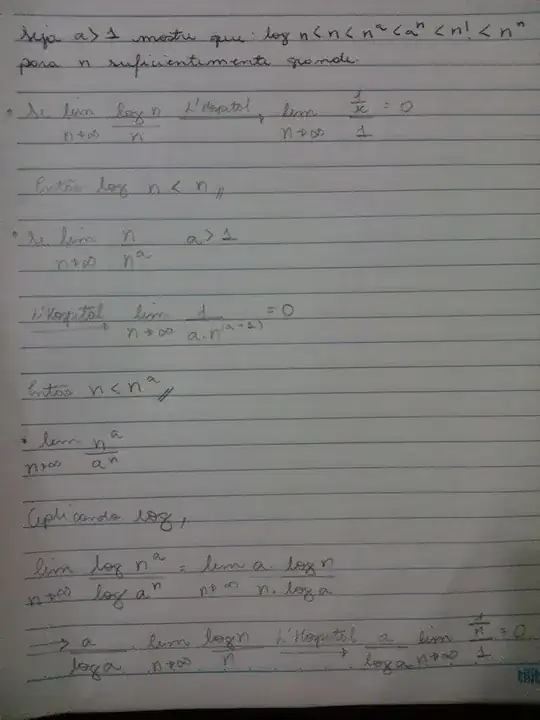 Seja a > 1 mostre que: log n < n < n^a < a^n < n! < n^n
para n suficientemente grande.
• Se lim n→∞ log n / n L'Hopital → lim n→∞ (1/x)/1 = 0
Então log n < n,,
• Se lim n→∞ n / n^a a > 1
L'Hospital → lim n→∞ 1 / a.n^(a-1) = 0
Então n < n^a,,
• lim n→∞ n^a / a^n
Aplicando log,
lim n→∞ log n^a / log a^n = lim n→∞ a. log n / n. log a
→ a / log a . lim n→∞ log n / n L'Hopital → a / log a lim n→∞ (1/n)/1 = 0